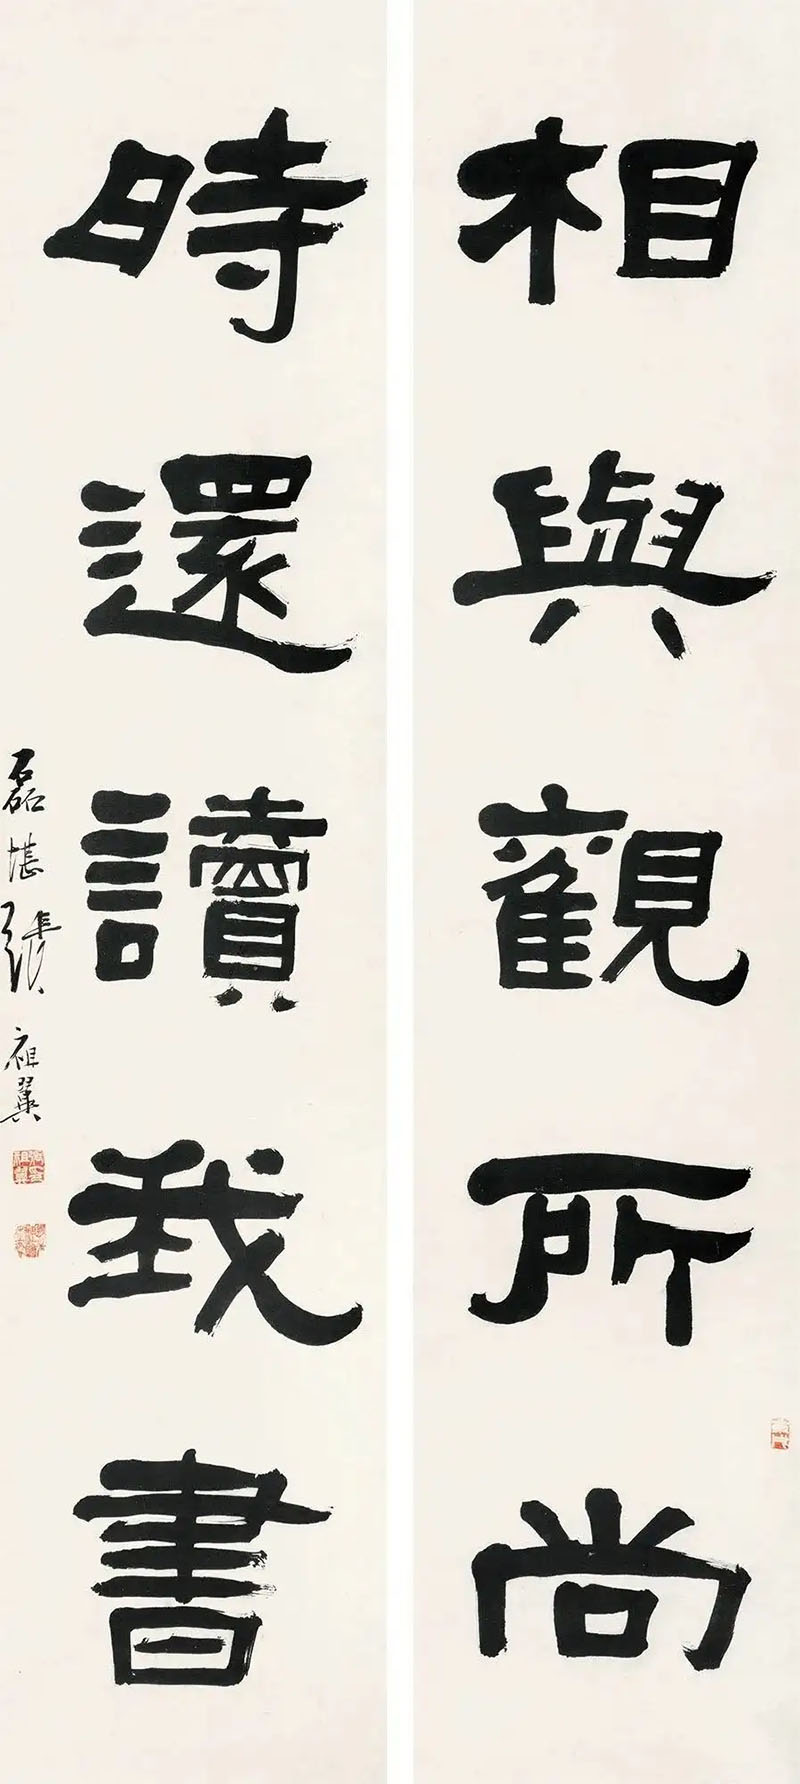 相與觀所尚
時還讀我書
磊堪張祖翼